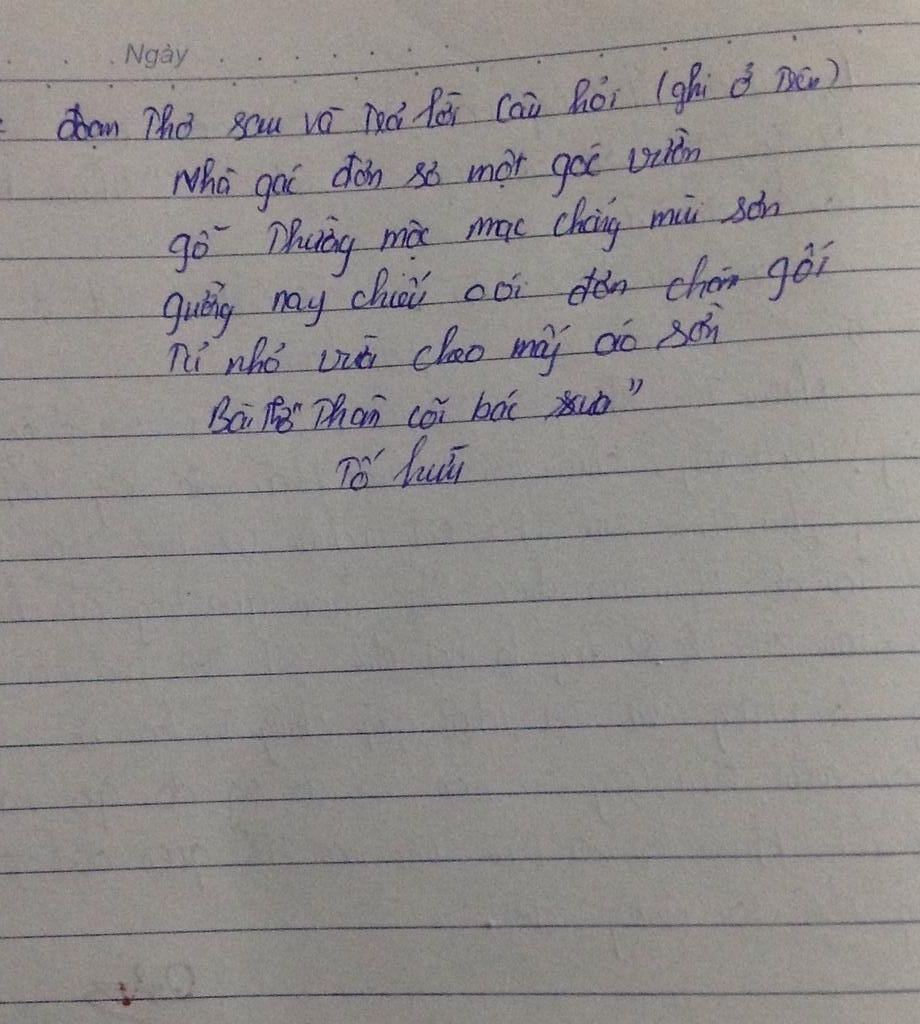 Ngày
đoạn thơ sau và trả lời câu hỏi (ghi ở trên)
Nhà gác đơn sơ một góc vườn
gỗ thường mộc mạc chẳng mùi sơn
giường mây chiếu cói đơn chăn gối
Tủ nhỏ vừa treo mấy áo sờn
Bài thơ "Thăm cõi bác xưa"
Tố hữu